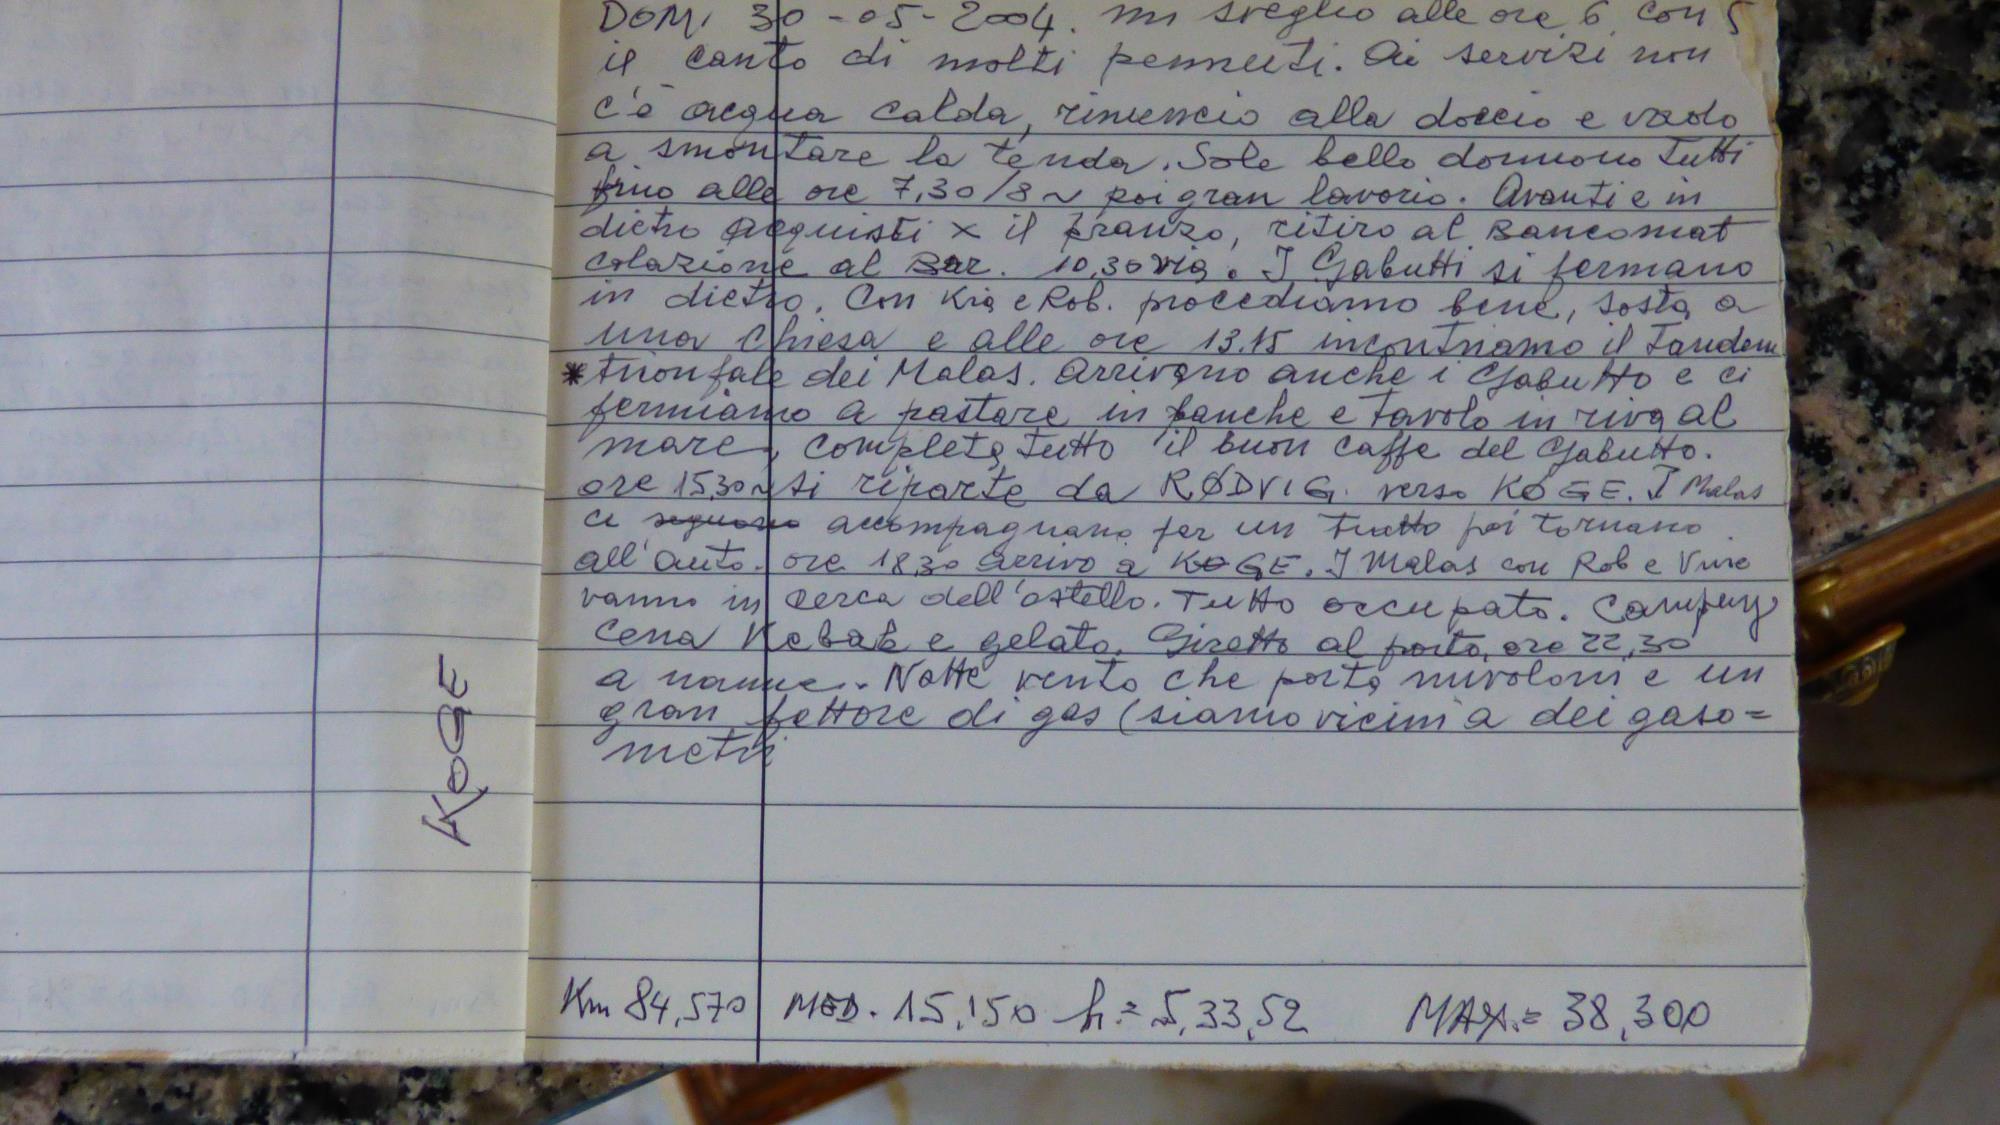 DOM, 30-05-2004. mi sveglio alle ore 6 con 5
il canto di molti pennuti. Ai servizi non
c'è acqua calda, rinuncio alla doccia e vado
a smontare la tenda. Sole bello dormono tutti
fino alle ore 7,30/8 ~ poi gran lavorio. Avanti e in
dietro acquisti x il pranzo, ritiro al Bancomat
colazione al Bar. 10,30 via. I Gabutti si fermano
in dietro. Con Kia e Rob. procediamo bene, sosta a
una chiesa e alle ore 13.15 incontriamo il Tandem
* trionfale dei Malas. Arrivano anche i Gabutto e ci
fermiamo a pastare in panche e tavolo in riva al
mare, completa tutto il buon caffe del Gabutto.
ore 15,30 ~ si riparte da RØDVIG. verso KØGE. I Malas
ci seguono accompagnano per un tratto poi tornano
all'auto. ore 18,30 arrivo a KØGE. I Malas con Rob e
vanno in cerca dell'ostello. Tutto occupato. Camping
cena Kebab e gelato. Giretto al porto, ore 22,30
a nanne. Notte vento che porta nuvoloni e un
gran fettore di gas (siamo vicini a dei gaso=
metri
KOGE
Km 84,570 MED. 15,150 h = 5,33,52 MAX. = 38,300